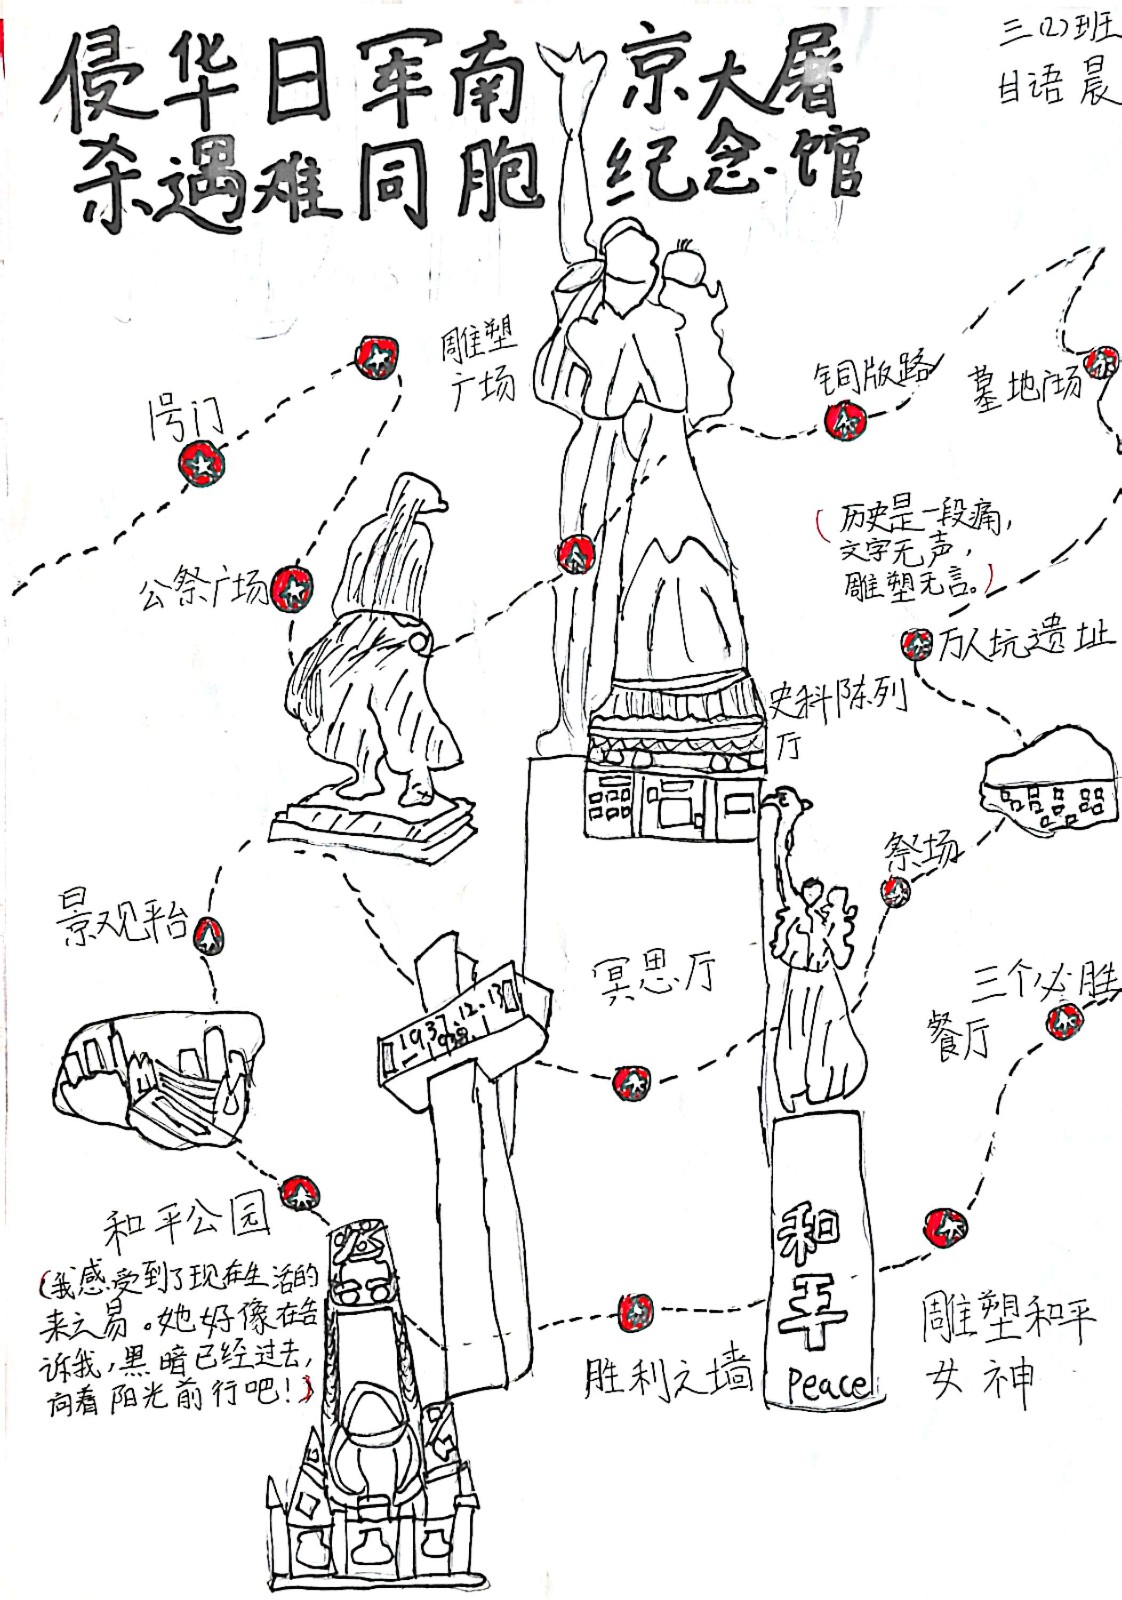 三(2)班
目语晨
侵华日军南京大屠
杀遇难同胞纪念馆
雕塑
广场
1号门
铜版路
墓地广场
(历史是一段痛,
文字无声,
雕塑无言。)
公祭广场
万人坑遗址
史料陈列
厅
祭场
景观平台
冥思厅
三个必胜
餐厅
1937.12.13
和平公园
(我感受到了现在生活的
来之易。她好像在告
诉我,黑暗已经过去,
向着阳光前行吧!)
和
平
Peace
胜利之墙
雕塑和平
女神